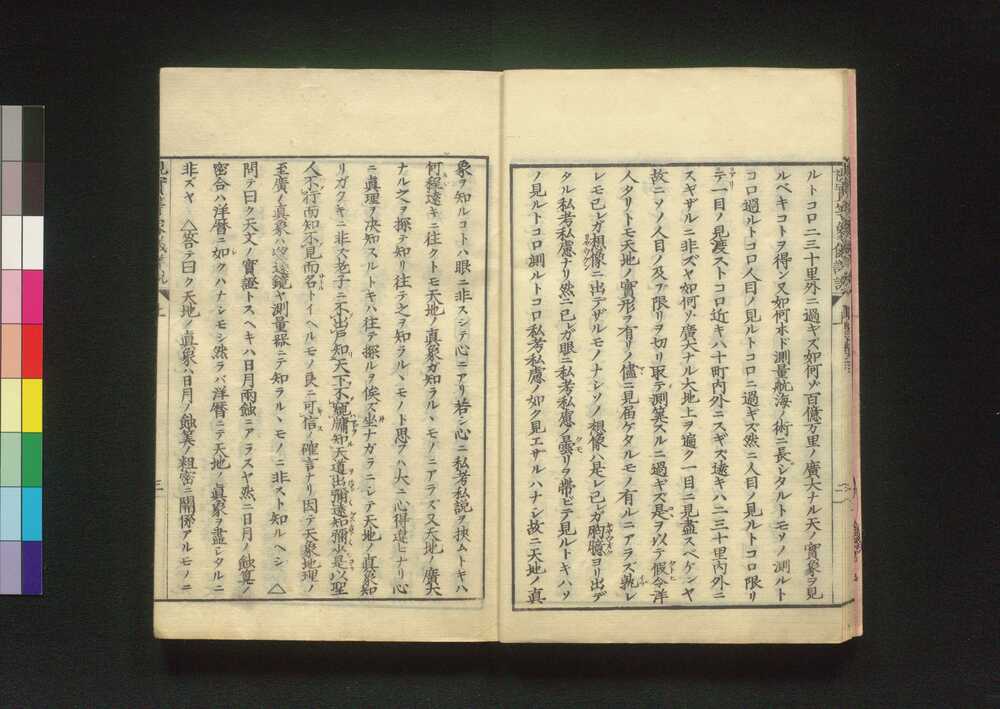 ルトコロ二三十里外ニ過ギズ如何ゾ百億万里ノ廣大ナル天ノ實象ヲ見
ルベキコトヲ得ン又如何ホド測量航海ノ術ニ長シタルトモソノ測ルト
コロ過ルトコロ人目ノ見ルトコロニ過ギズ然ニ人目ノ見ルトコロ限リ
アリテ一目ノ見渡ストコロ近キハ十町内外ニスギズ遠キハ二三十里内外ニ
スギザルニ非ズヤ如何ゾ廣大ナル大地上ヲ遍ク一目ニ見盡スベケンヤ
故ニソノ人目ノ及ブ限リヲ切リ取テ測算スルニ過ギズ是ヲ以テ假令洋
人タリトモ天地ノ實形ヲ有リノ儘ニ見屆ケタルモノ有ルニアラズ孰レ
レモ已レガ想像ニ出テザルモノナシソノ想像ハ是レ已レガ胸臆ヨリ出デ
タル私考私慮ナリ然ニ已レガ眼ニ私考私慮ノ曇リヲ帶ビテ見ルトキハソ
ノ見ルトコロ測ルトコロ私考私慮ノ如ク見エザルハナシ故ニ天地ノ真
象ヲ知ルコトハ眼ニ非スシテ心ニアリ若シ心ニ私考私説ヲ挾ムトキハ
何程遠キニ往クトモ天地ノ真象ガ知ラルヽモノニアラズ又天地ノ廣大
ナル之ヲ探テ知リ往テ之ヲ知ラルヽモノト思フハ大ニ心得違ヒナリ心
ニ眞理ヲ决知スルトキハ往テ探ルヲ俟ズ坐ナガラニシテ天地ノ真象知
リガタキニ非ズ老子ニ不出戸知天下不窺牖知天道出彌遠知彌少是以聖
人不行而知不見而名トイヘルモノ良ニ可信ノ確言ナリ因テ天象地理ノ
至廣ノ真象ハ望遠鏡ヤ測量器ニテ知ラルヽモノニ非スト知ルヘシ △
問テ曰ク天文ノ實證トスヘキハ日月兩蝕ニアラスヤ然ニ日月ノ蝕算ノ
密合ハ洋暦ニ如クハナシモシ然ラバ洋暦ニテ天地ノ眞象ヲ盡シタルニ
非ズヤ △答テ曰ク天地ノ真象ハ日月ノ蝕算ノ粗密ニ關係アルモノニ
三